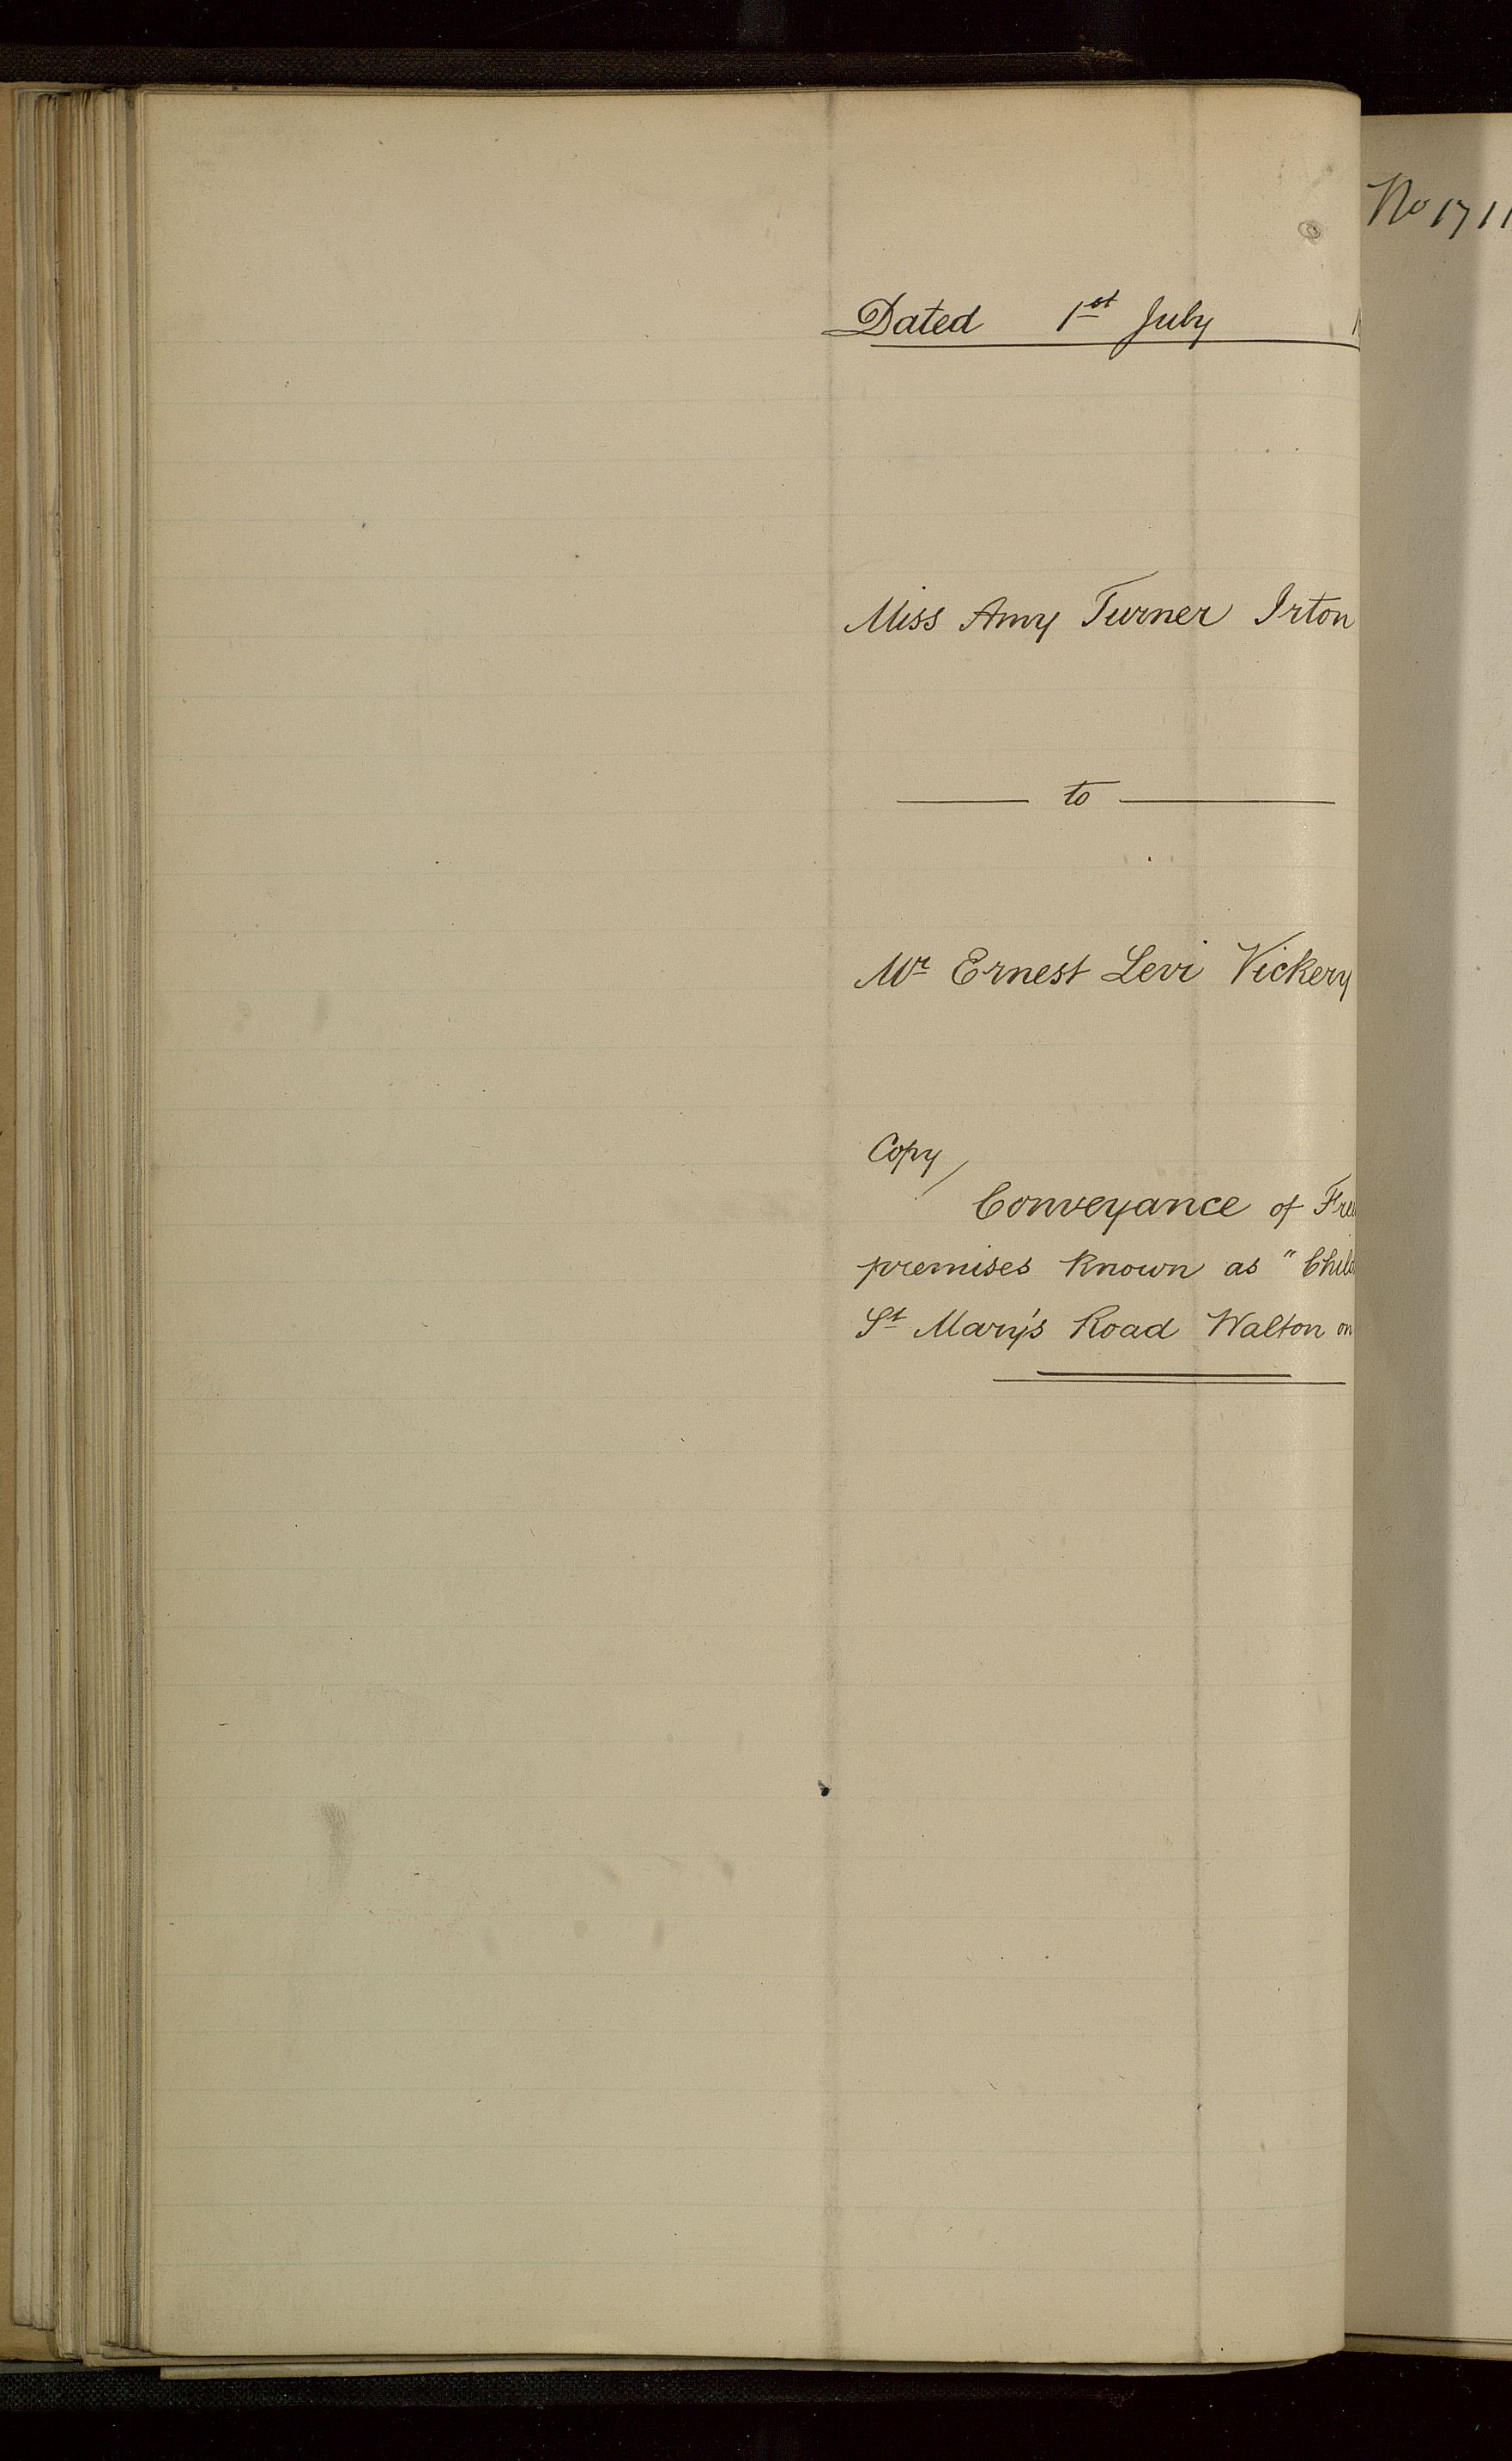 No 1711
Dated 1st July
Miss Amy Turner Irton
to
Mr Ernest Levi Vickery
Copy
Conveyance of
premises known as "
St Mary's Road Walton on